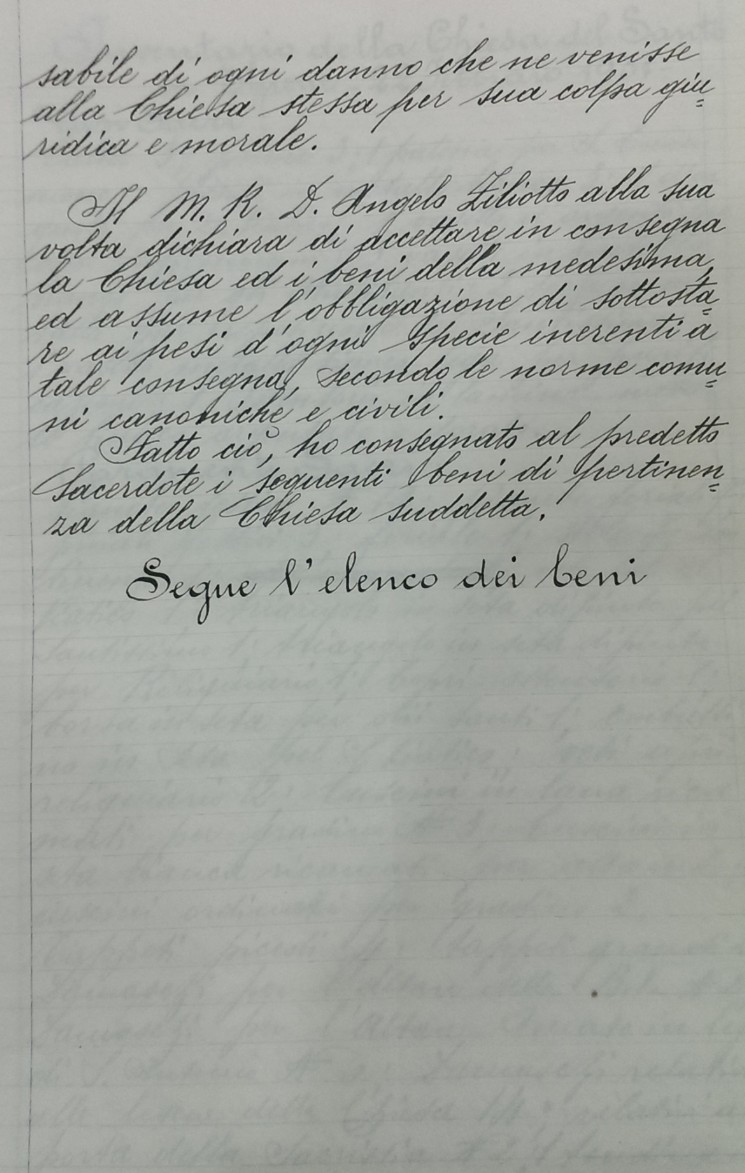 sabile di ogni danno che ne venisse
alla Chiesa stessa per sua colpa giu=
ridica e morale.
Il M. R. D. Angelo Ziliotto alla sua
volta dichiara di accettare in consegna
la Chiesa ed i beni della medesima,
ed assume l'obbligazione di sottosta=
re ai pesi d'ogni specie inerenti a
tale consegna, secondo le norme comu=
ni canoniche e civili.
Fatto ciò, ho consegnato al predetto
Sacerdote i seguenti beni di pertinen=
za della Chiesa suddetta.
Segue l'elenco dei beni